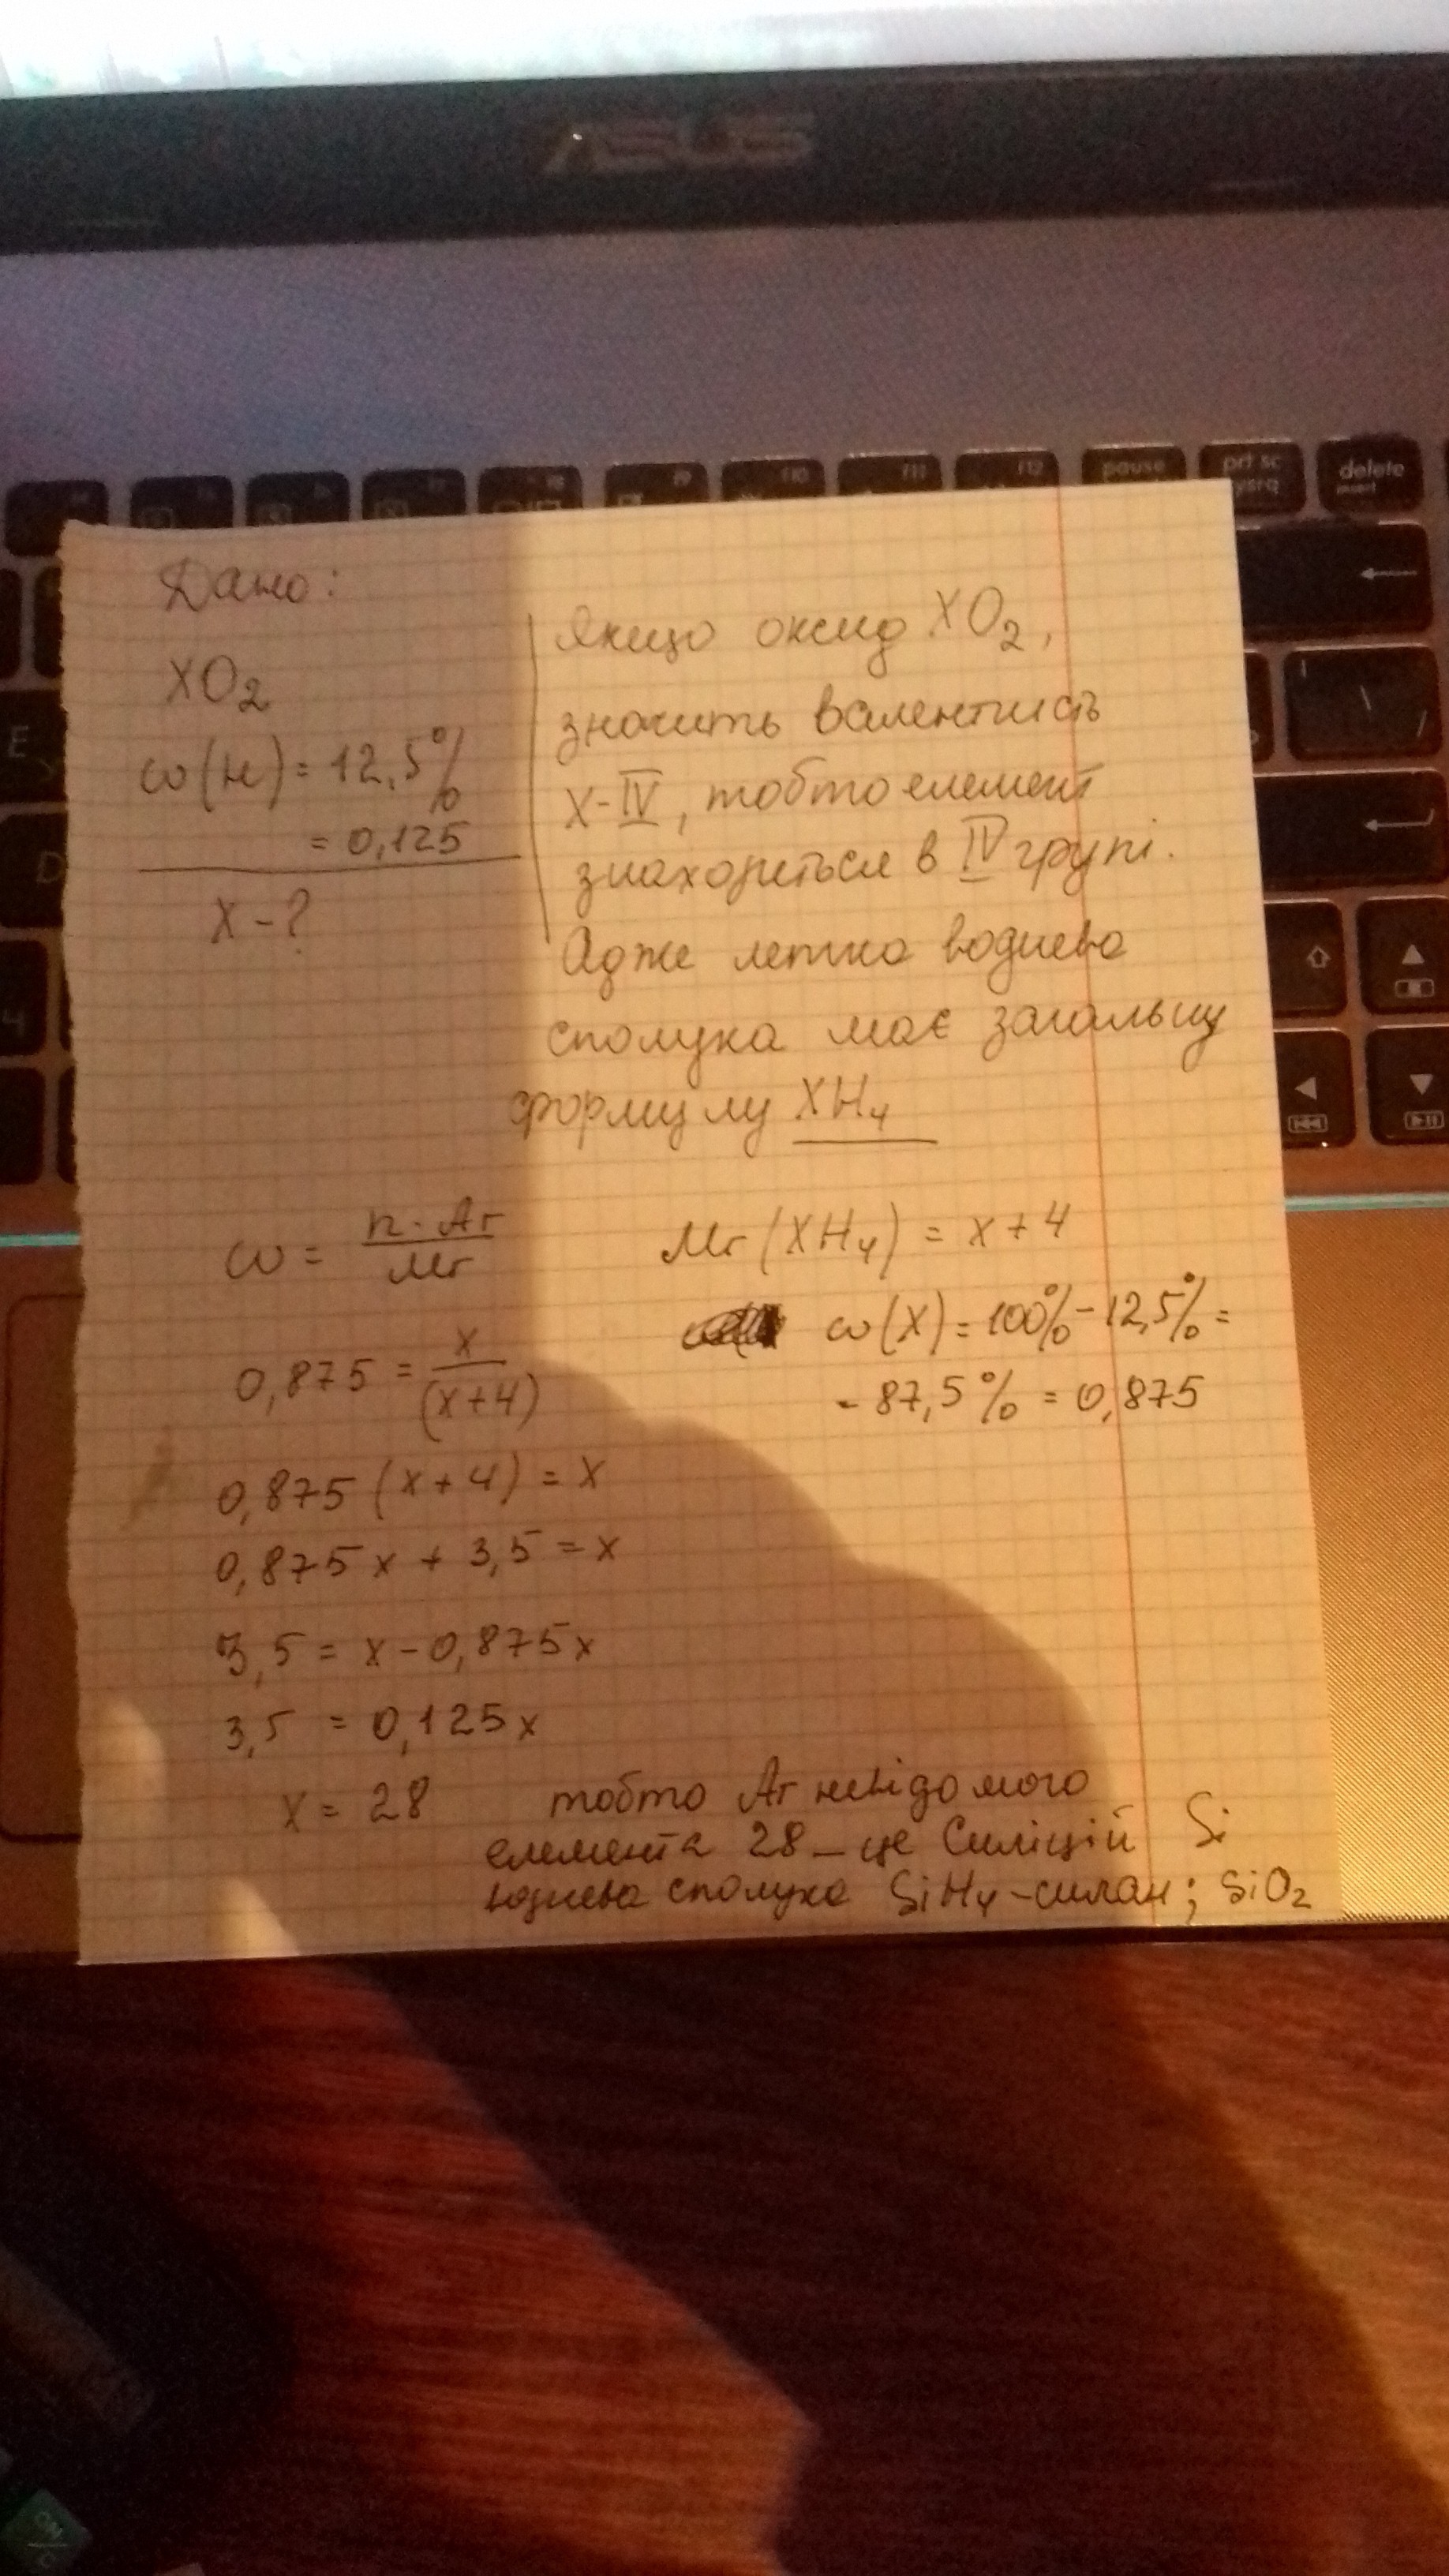 ASUS
F9
F10
F11
F12
pause
prt sc
sysrq
delete
insert
E
D
4
Дано:
XO2
ω(H) = 12,5%
= 0,125
X - ?
Якщо оксид XO2,
значить валентність
X - IV, тобто елемент
знаходиться в IV групі.
Адже летка воднева
сполука має загальну
формулу XH4
ω = n · Ar / Mr
Mr (XH4) = x + 4
ω(X) = 100% - 12,5% =
- 87,5% = 0,875
0,875 = x / (x+4)
0,875 (x + 4) = x
0,875 x + 3,5 = x
3,5 = x - 0,875x
3,5 = 0,125x
x = 28 тобто Ar невідомого
елемента 28 – це Силіцій Si
воднева сполука SiH4 - силан; SiO2